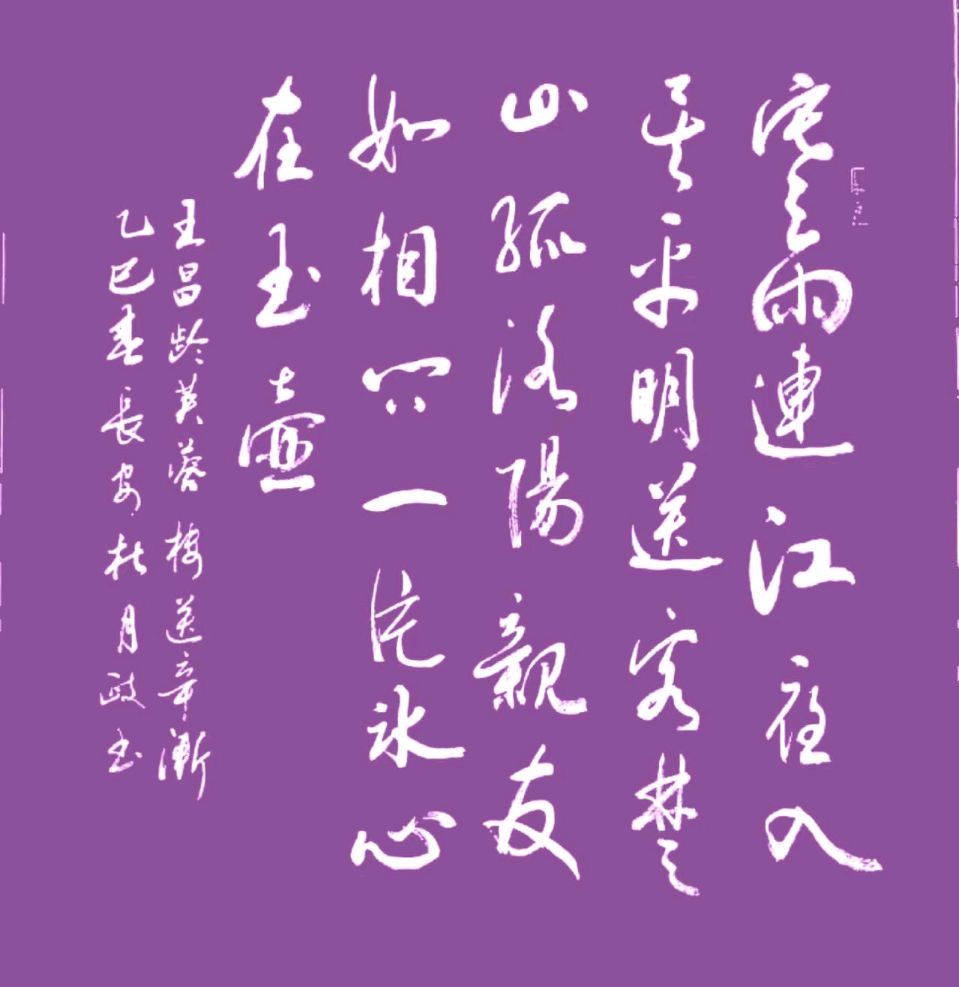 寒雨連江夜入
吴平明送客楚
山孤洛陽親友
如相问一片冰心
在玉壺
王昌齡芙蓉樓送辛漸
乙巳春長安杜月政书